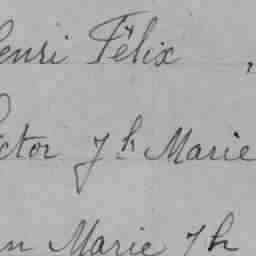 enri Félix ,
ctor Jh Marie
n Marie Jh